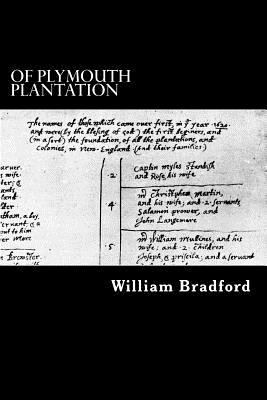 OF PLYMOUTH
PLANTATION
The names of those which came over first, in yᵉ year 1620.
and were by the blesing of god the first beginers, and
(in a sort) the foundation, of all the plantations, and
colonies, in New-England (and their families)
arver.
s wife
ter; &
ants.
ter
tham, a boy.
ervant; & a
out to him
er More
en Brewster.
·2·
Captin Myles Standish
and Rose, his wife
·4·
mr Christpher, martin,
and his wife; and ·2· servants,
Salamon prower, and
John Langemore
·5·
mr William Mullines, and his
wife; and ·2· children
Joseph, & priscila; and a servant
William Bradford